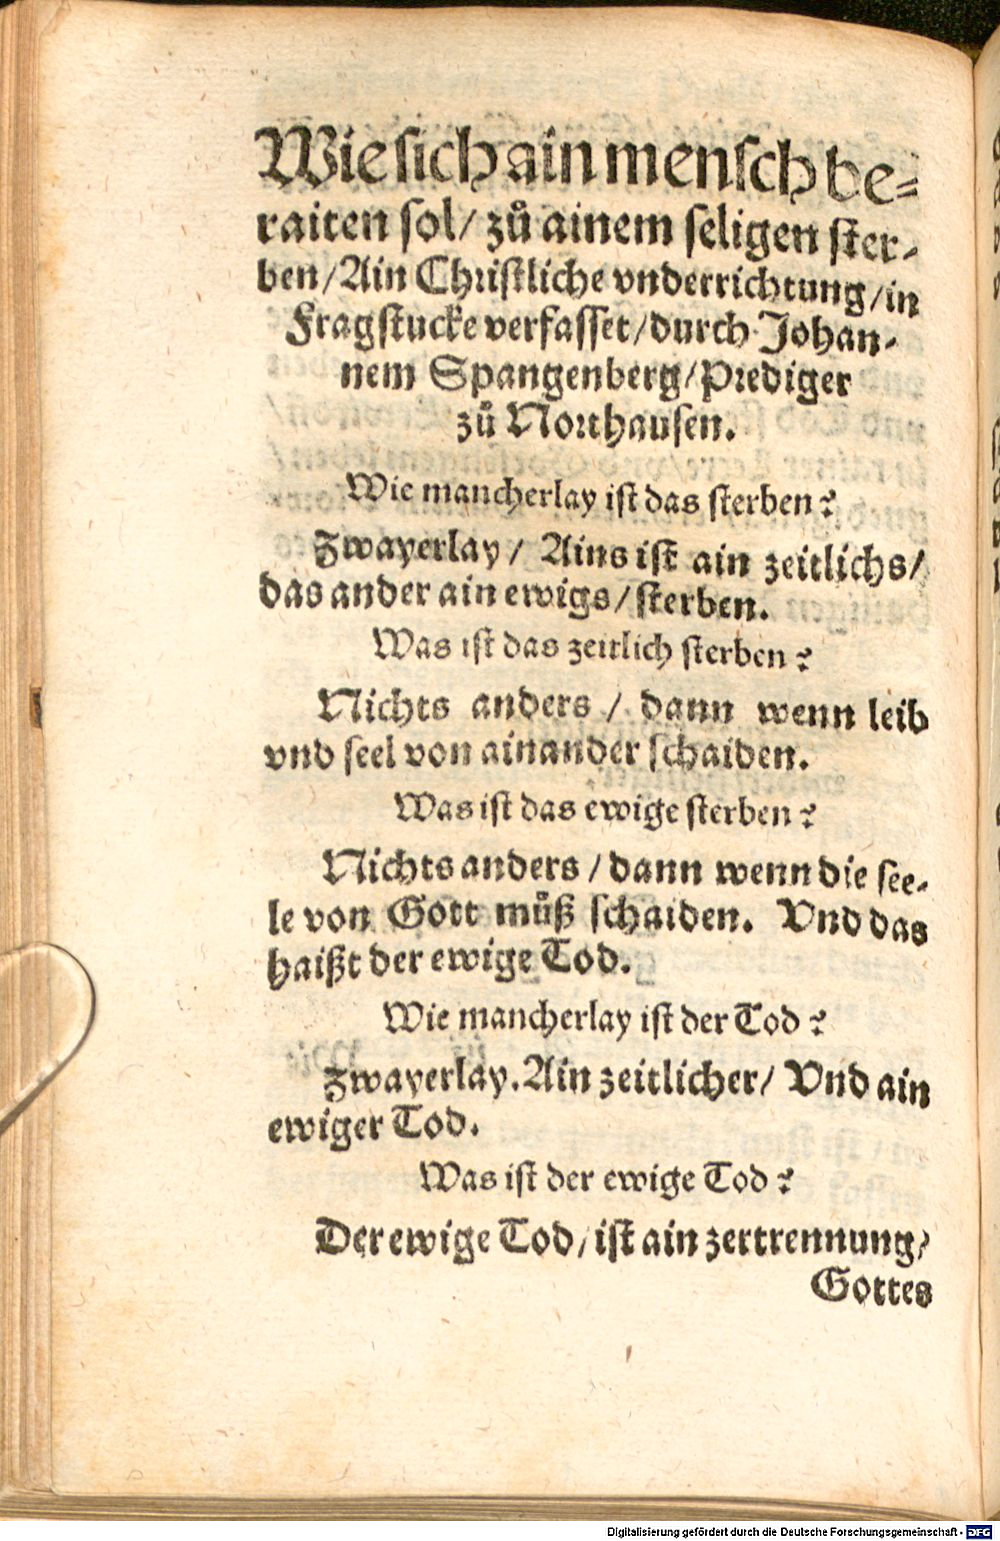 Wie sich ain mensch be-
raiten sol/ zů ainem seligen ster-
ben/ Ain Christliche vnderrichtung/ in
Fragstucke verfasset/ durch Johan-
nem Spangenberg/ Prediger
zů Northausen.
Wie mancherlay ist das sterben?
Zwayerlay/ Ains ist ain zeitlichs/
das ander ain ewigs/ sterben.
Was ist das zeitlich sterben?
Nichts anders/ dann wenn leib
vnd seel von ainander schaiden.
Was ist das ewige sterben?
Nichts anders/ dann wenn die see-
le von Gott můß schaiden. Vnd das
haißt der ewige Tod.
Wie mancherlay ist der Tod?
Zwayerlay. Ain zeitlicher/ Vnd ain
ewiger Tod.
Was ist der ewige Tod?
Der ewige Tod/ ist ain zertrennung/
Gottes
Digitalisierung gefördert durch die Deutsche Forschungsgemeinschaft - DFG